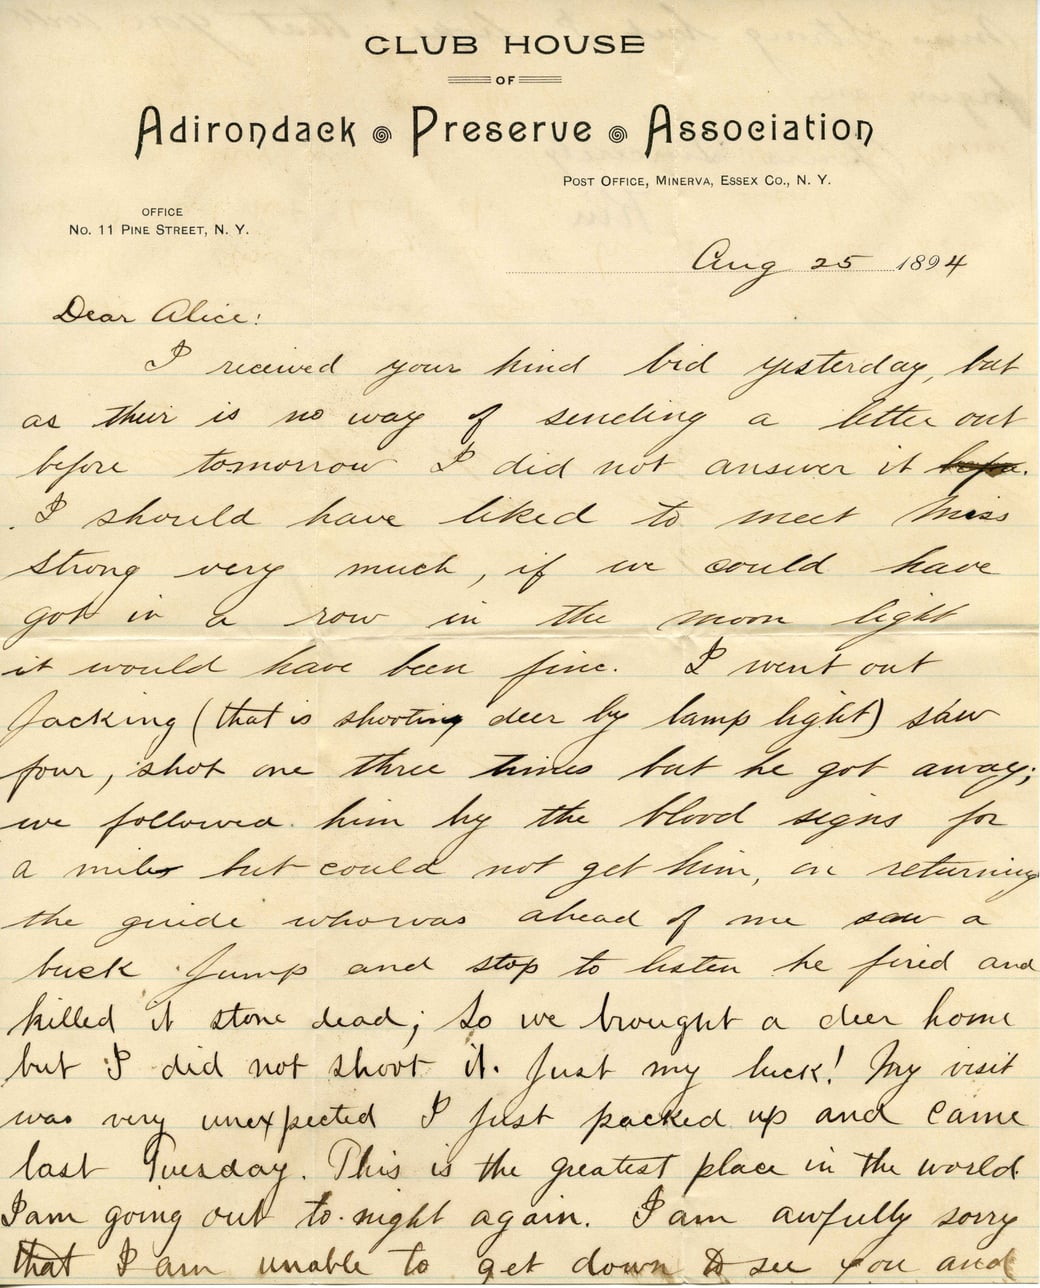 CLUB HOUSE
OF
Adirondack Preserve Association
POST OFFICE, MINERVA, ESSEX CO., N. Y.
OFFICE
NO. 11 PINE STREET, N. Y.
Aug 25 1894
Dear Alice:
I received your kind bid yesterday, but
as their is no way of sending a letter out
before tomorrow I did not answer it
I should have liked to meet Miss
Strong very much, if we could have
got in a row in the moon light
it would have been fine. I went out
Jacking (that is shooting deer by lamp light) saw
four, shot one three times but he got away;
we followed him by the blood signs for
a mile but could not get him, on returning
the guide who was ahead of me saw a
buck Jump and stop to listen he fired and
killed it stone dead; So we brought a deer home
but I did not shoot it. Just my luck! My visit
was very unexpected I just packed up and came
last Tuesday. This is the greatest place in the world.
I am going out to-night again. I am awfully sorry
that I am unable to get down to see you and